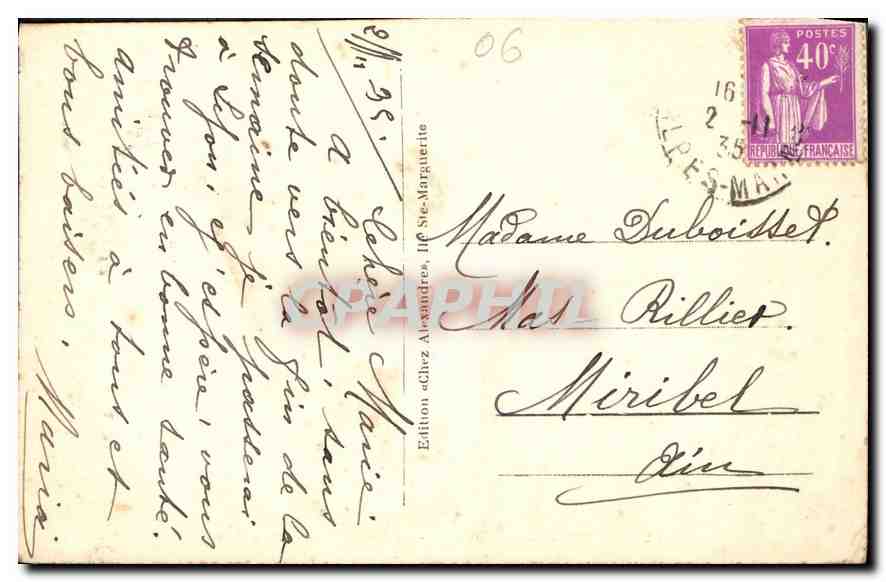 06
POSTES
40c
REPUBLIQUE FRANÇAISE
16
2 -11
35
ALPES-MAR
2/11 35.
Chère Marie
A bientôt sans
doute vers la fin de la
semaine je passerai
à Lyon, et j'espère vous
trouver en bonne santé.
amitiés à tous et
bons baisers.
Maria.
Edition «Chez Alexandre», Ile Ste-Marguerite
Madame Duboisset.
Mas Rillier.
Miribel
Ain
CPAPHIL